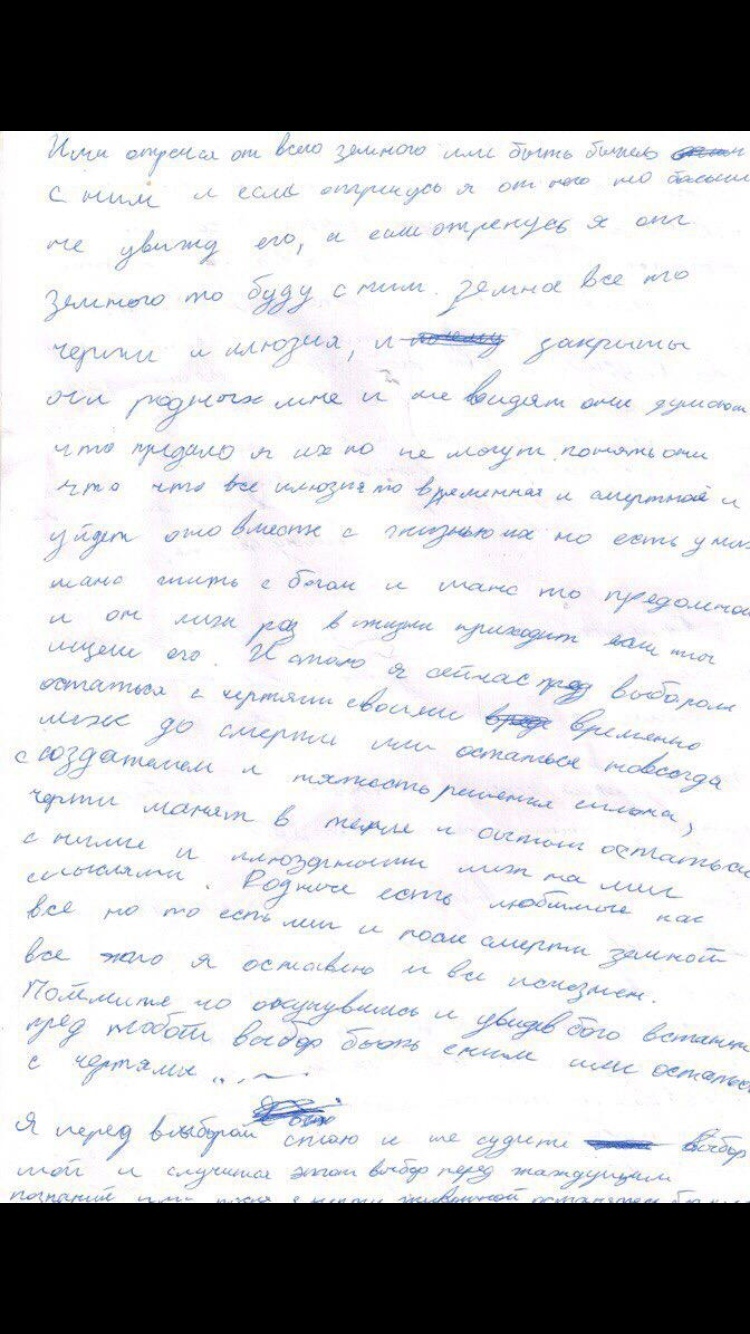 Или отречся от всего земного или быть
с ним и если отринусь я от него то больше
не увижд его, а если отренусь я от
земного то буду с ним. земное все то
черти и илюзия, и закрыты
очи родных мне и не видят они думают
что предало я их но не могут понять они
что что все илюзия то временная и смертной и
уйдет оно вместе с жизнью их но есть у них
шанс жить с богом и шанс то предомной
и он лиш раз в жизни приходит если ты
ищеш его. И стою я сейчас пред выбором
остаться с чертями своими временно
лиш до смерти или остаться навсегда
с создателем и тяжесть решения сильна,
черти манят в и остаться
с ними и лиш на миг
смыслами. Родные есть любимые как
все но то есть миг и после смерти земной
все я оставлю и все исчезнет.
Поймите но окунувшись и увидев бога встанет
пред тобой выбор быть с ним или остаться
с чертями ...
Я перед выбором стою и не судите выбор
мой и случится этот выбор перед жаждущим
познаний или